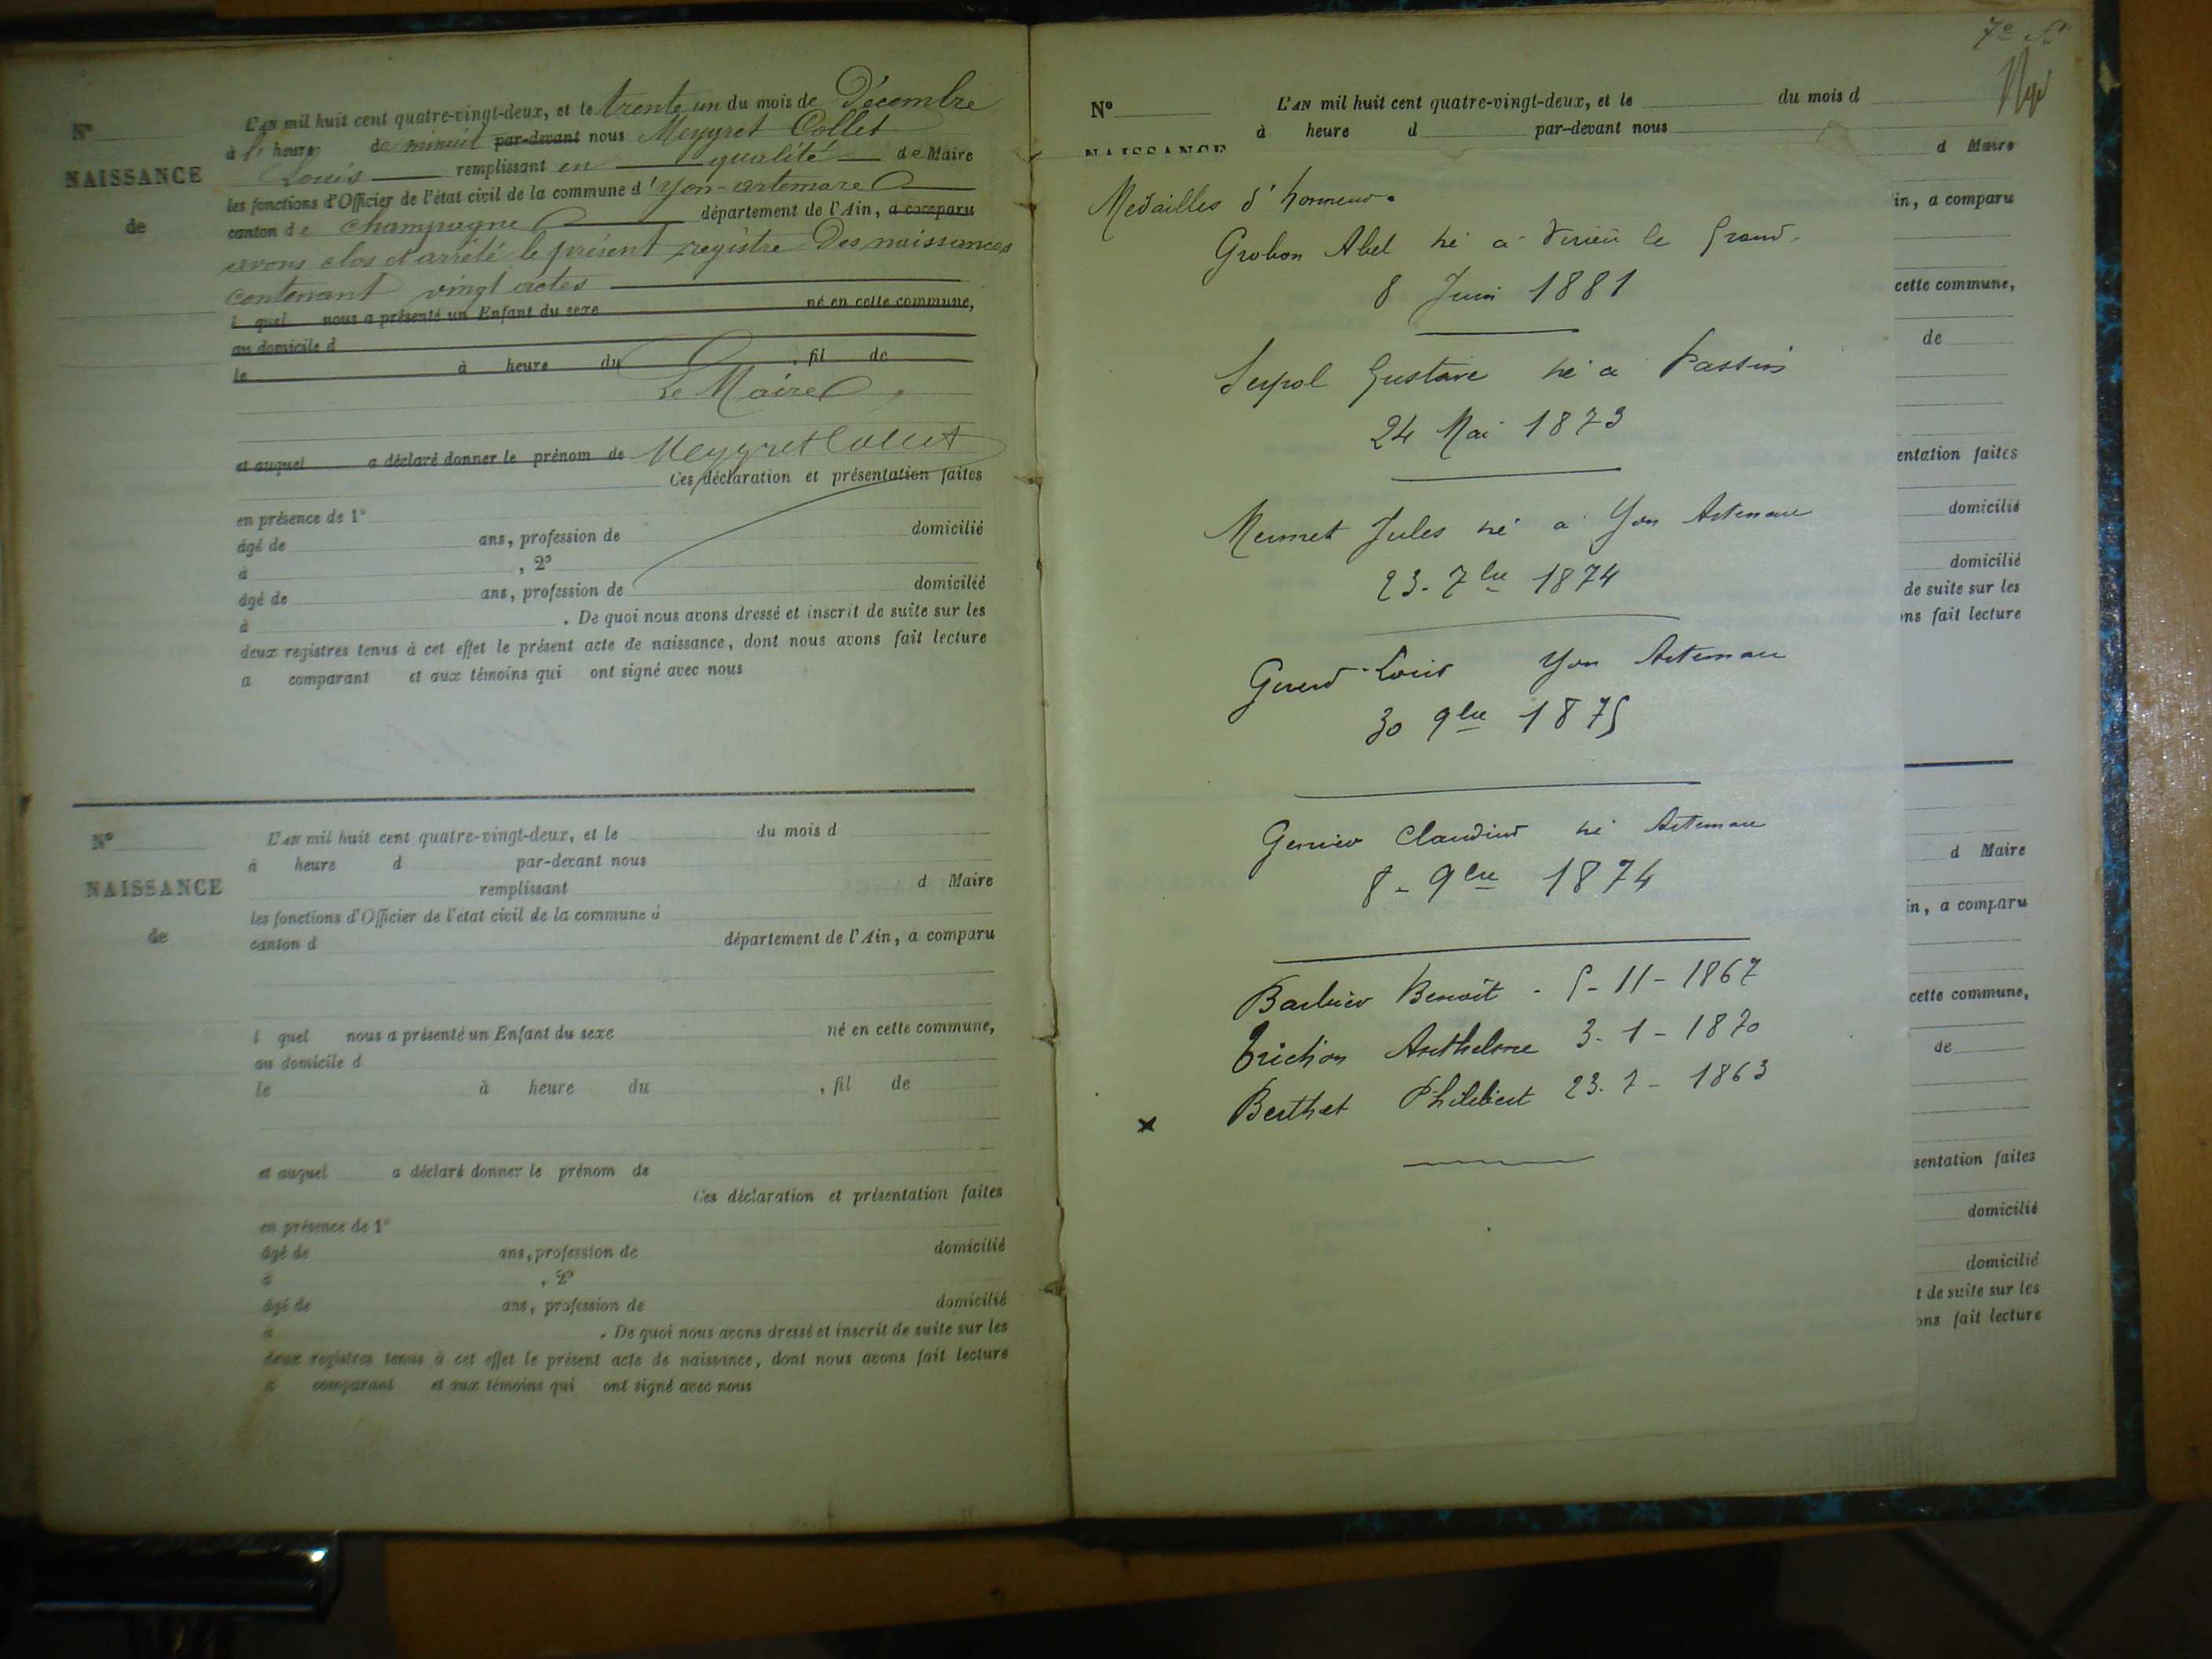 N°
NAISSANCE
de
L'AN mil huit cent quatre-vingt-deux, et le trente un du mois de Décembre
à l' heure de minuit par-devant nous Meygret Collet
Louis remplissant en qualité de Maire
les fonctions d'Officier de l'état civil de la commune d'Yon-artemare
canton de Champagne département de l'Ain, a comparu
avons clos et arrêté le présent registre Des naissances
contenant vingt actes
l quel nous a présenté un Enfant du sexe né en cette commune,
au domicile d
le à heure du , fil de
Le Maire
et auquel a déclaré donner le prénom de Meygret Collet
Ces déclaration et présentation faites
en présence de 1°
âgé de ans, profession de domicilié
à , 2°
âgé de ans, profession de domicilié
à . De quoi nous avons dressé et inscrit de suite sur les
deux registres tenus à cet effet le présent acte de naissance, dont nous avons fait lecture
a comparant et aux témoins qui ont signé avec nous
N°
NAISSANCE
de
L'AN mil huit cent quatre-vingt-deux, et le du mois d
à heure d par-devant nous
remplissant d Maire
les fonctions d'Officier de l'état civil de la commune d
canton d département de l'Ain, a comparu
l quel nous a présenté un Enfant du sexe né en cette commune,
au domicile d
le à heure du , fil de
et auquel a déclaré donner le prénom de
Ces déclaration et présentation faites
en présence de 1°
âgé de ans, profession de domicilié
à , 2°
âgé de ans, profession de domicilié
à . De quoi nous avons dressé et inscrit de suite sur les
deux registres tenus à cet effet le présent acte de naissance, dont nous avons fait lecture
a comparant et aux témoins qui ont signé avec nous
7e
N° L'AN mil huit cent quatre-vingt-deux, et le du mois d
à heure d par-devant nous
NAISSANCE
d Maire
Medailles d'honneur.
in, a comparu
Grobon Abel né a Virieu le Grand
8 Juin 1881
cette commune,
de
Serpol Gustave né a Passin
24 Mai 1873
entation faites
Mermet Jules né a Yon Artemare
domicilié
23. 7bre 1874
domicilié
de suite sur les
ons fait lecture
Louis Yon Artemare
30 9bre 1875
Claudius né Artemare
8 - 9bre 1874
d Maire
in, a comparu
Barbier Benoît - 5 - 11 - 1867
cette commune,
Anthelme 3 - 1 - 1870
de
x Berthet Philibert 23. 7 - 1863
sentation faites
domicilié
domicilié
t de suite sur les
ons fait lecture